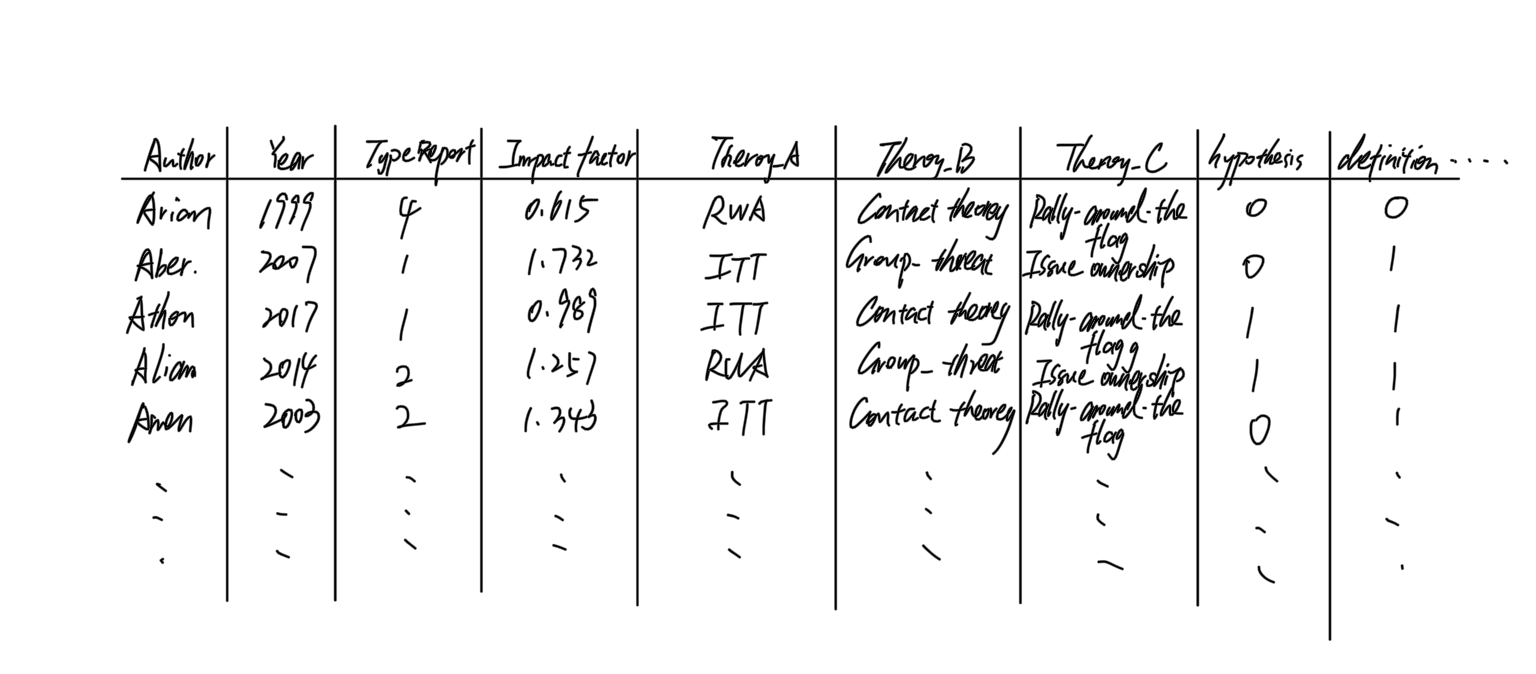 Author Year TypeReport Impact factor Theroy_A Theroy_B Theroy_C hypothesis definition .....
Arian 1999 4 0.615 RWA Contact theorey Rally-around-the flag 0 0
Aber. 2007 1 1.732 ITT Group_threat Issue ownership 0 1
Athon 2017 1 0.989 ITT Contact theorey Rally-around-the flagg 1 1
Aliam 2014 2 1.257 RWA Group_threat Issue ownership 1 1
Amen 2003 2 1.343 ITT Contact theorey Rally-around-the flag 0 1